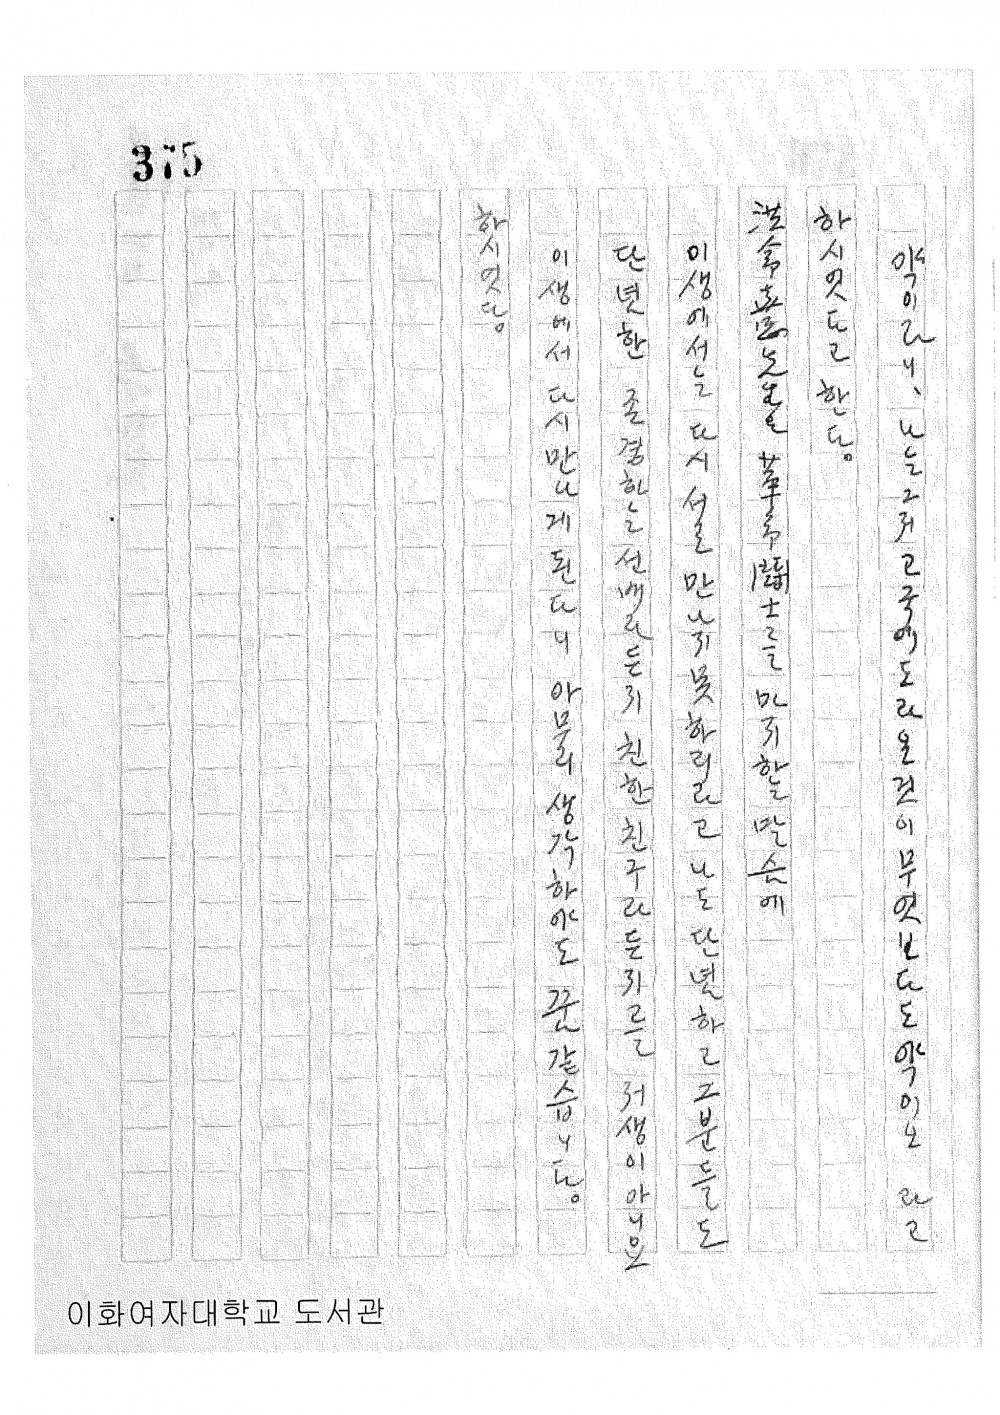 375
약이라니、 나는그저고국에도라온것이무엇보다도약이오 라고
하시엿다고 한다。
洪命憙先生은 革命鬪士를 마지하는 말슴에
이생에서는 다시 서로 만나지못하리라고 나도단념하고그분들도
단념한 존경하는선배라든지 친한친구라든지를 저생이아니요
이생에서 다시만나게된다니 아무리생각하야도 꿈같습니다。
하시엿다。
이화여자대학교 도서관